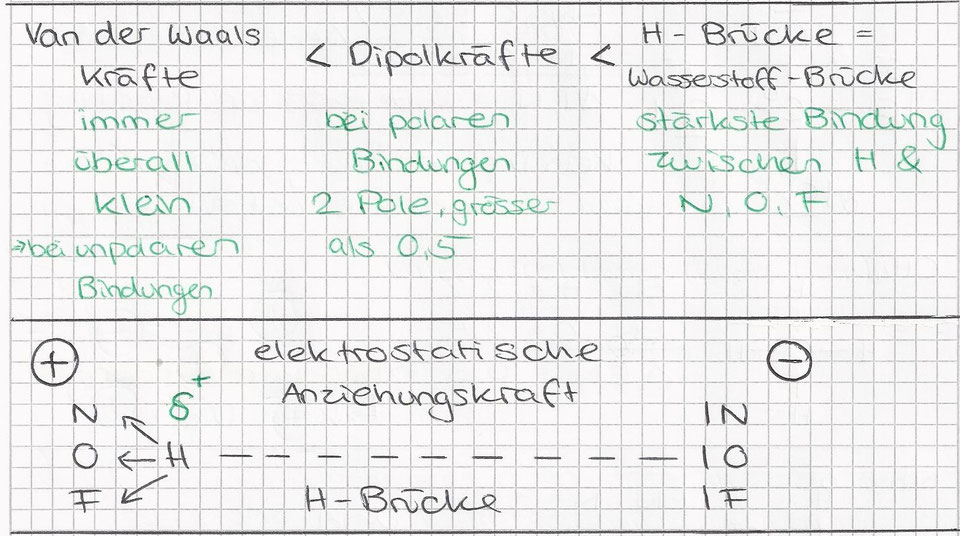 Van der Waals Kräfte < Dipolkräfte < H-Brücke = Wasserstoff-Brücke
immer
überall
klein
⇒ bei unpolaren
Bindungen
bei polaren
Bindungen
2 Pole, grösser
als 0,5
stärkste Bindung
zwischen H &
N, O, F
+ elektrostatische −
Anziehungskraft
N δ+ IN
O ← H – – – – – – – – – – IO
F H-Brücke IF